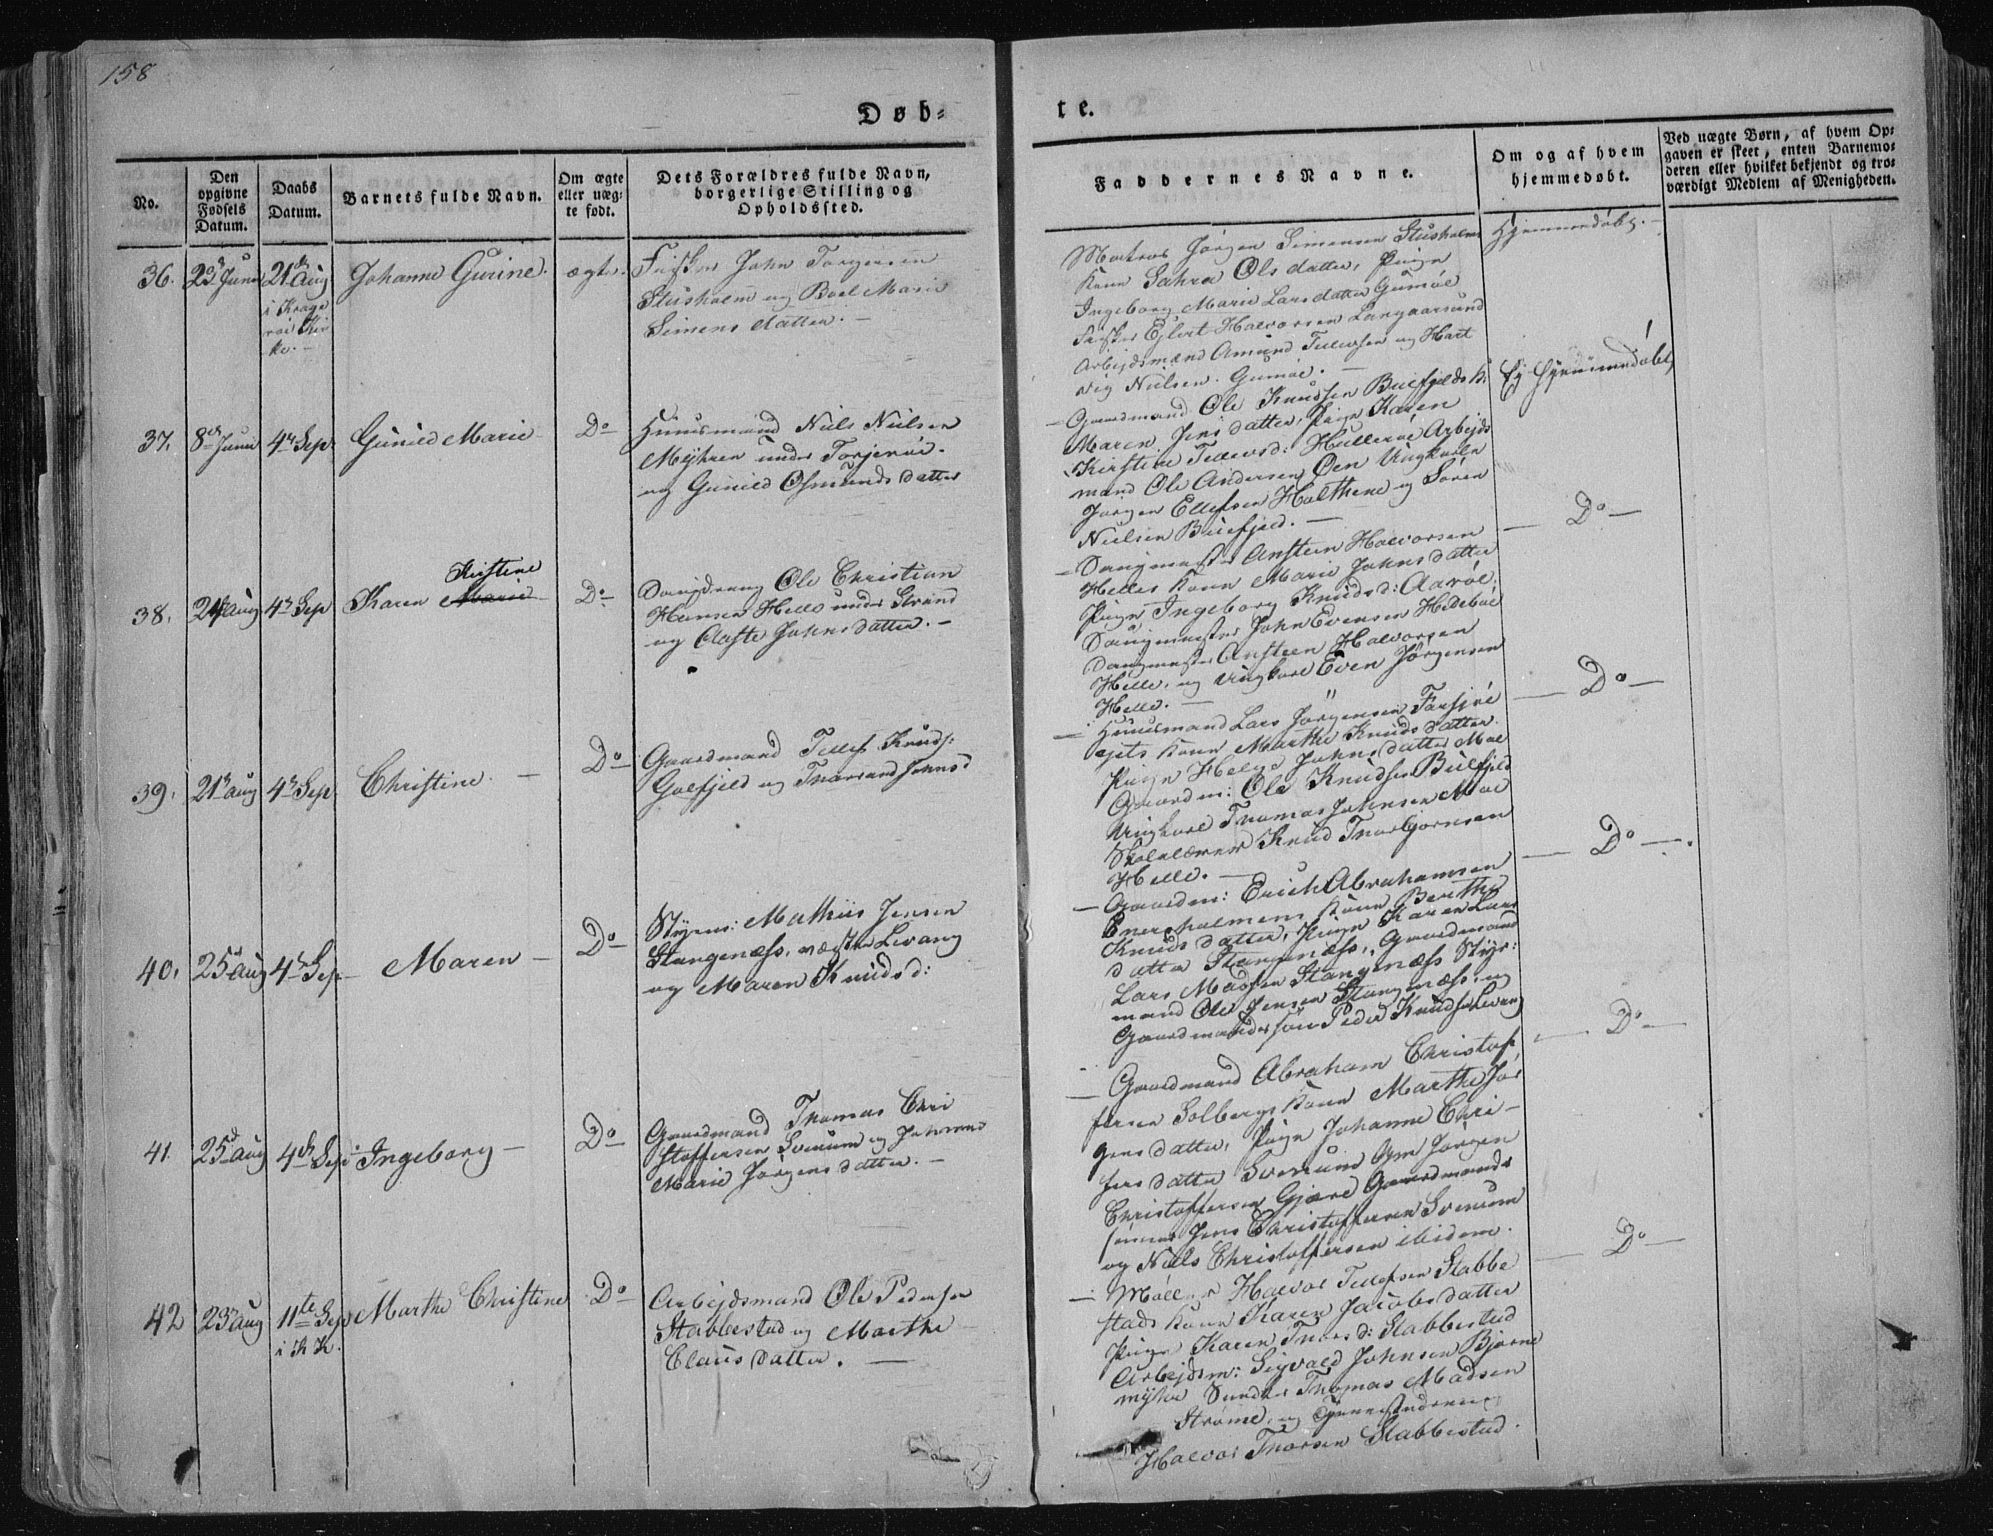 158
Døb-
te.
No.
Den
opgivne
Fødsels
Datum.
Daabs
Datum.
Barnets fulde Navn.
Om ægte
eller uæg-
te født.
Dets Forældres fulde Navn,
borgerlige Stilling og
Opholdssted.
Faddernes Navne.
Om og af hvem
hjemmedøbt.
Ved uægte Børn, af hvem Op-
gaven er skeet, enten Barnemo-
deren eller hvilket bekjendt og tro-
værdigt Medlem af Menigheden.
36.
23 Juni
21 Aug
i Krage
röe Kir
ke.
Johanne Gurine.
ægte.
Fisker John Torgersen
Stusholm og Boel Marie
Simens datter.
Matros Jørgen Simensen Stusholm
Kone Sahra Ols datter, Pige
Ingeborg Marie Lars datter Gumøe
Fisker Ejlert Halvorsen Langaarsund
Arbejdsmænd Amund Tellefsen og Hart
vig Nielsen. Gumøe.
Hjemmedøbt.
37.
8de Juni
4de Sep
Gunild Marie
Do
Huusmand Niels Nielsen
Mejhren under Torjeröe.
og Gunild Osmunds datter
Gaardmand Ole Knudsen Buefjelds K.
Maren Jens datter, Pige Karen
Kirstine Tellevsd: Hulleröe Arbejds
mand Ole Andersen Øen Ungkarle
Jørgen Ellefsen Holthene og Sören
Nielsen Buefjeld.
Ej Hjemmedøbt,
38.
24 Aug
4de Sep
Karen Marie
Kirstine
Do
Ole Christian
Hansen Helle under Strand
og Aaste Johns datter.
Ansteen Halvorsen
Helles Kone Marie Johns datter
Pige Ingeborg Knudsd: Aaröe,
John Evensen Hedebøe
Ansteen Halvorsen
Helle, og Ungkarl Even Jørgensen
Helle.
Do
39.
21de Aug
4de Sep
Christine.
Do
Gaardmand Tellef Knuds:
Galfjeld og Thorand Johnsd
Huusmand Lars Jørgensen Farsjøe
ejets Kone Marthe Knuds datter.
Pige Helge Johns datter Moe
Gaardm: Ole Knudsen Buefjeld
Ungkarl Thomas Johnsen Moe
Skolelærer Knud Thorbjørnsen
Helle.
Do
40.
25 Aug
4de Sep
Maren
Do
Styrm: Mathiis Jensen
Stangenæss, væstre Levang
og Maren Knudsd:
Gaardm: Erich Abrahamsen
Enersholmens Kone Berthe
Knuds datter, Pige Karen Lars
datter Stangenæss, Gaardmand
Lars Madsen Stangenæss Styr:
mand Ole Jensen Stangenæss, og
Gaardmandssøn Peder Knudsen Levang
Do
41.
25 Aug
4de Sep
Ingeborg
Do
Gaardmand Thomas Chri
stoffersen Sverum og Johanne
Marie Jørgens datter.
Gaardmand Abraham Christof
fersen Solbergs Kone Marthe Jør
gens datter, Pige Johanne Chri-
fers datter Sverum Gm Jørgen
Christoffersen Gjære Gaardmands
sønner Jens Christoffersen Sverum
og Niels Christoffersen ibidem.
Do
42
23 Aug
11te Sep
i K K.
Marthe Christine
Do
Arbejdsmand Ole Pedersen
Stabbestad og Marthe
Claus datter.
Møller Halvor Tellefsen Stabbe
stads Kone Karen Jacobs datter
Pige Karen Thorsd: Stabbestad
Arbejdsm: Sigvald Johnsen Bjørne
myhr Thomas Madsen
Strømme, og
Halvor Thorsen Stabbestad.
Do